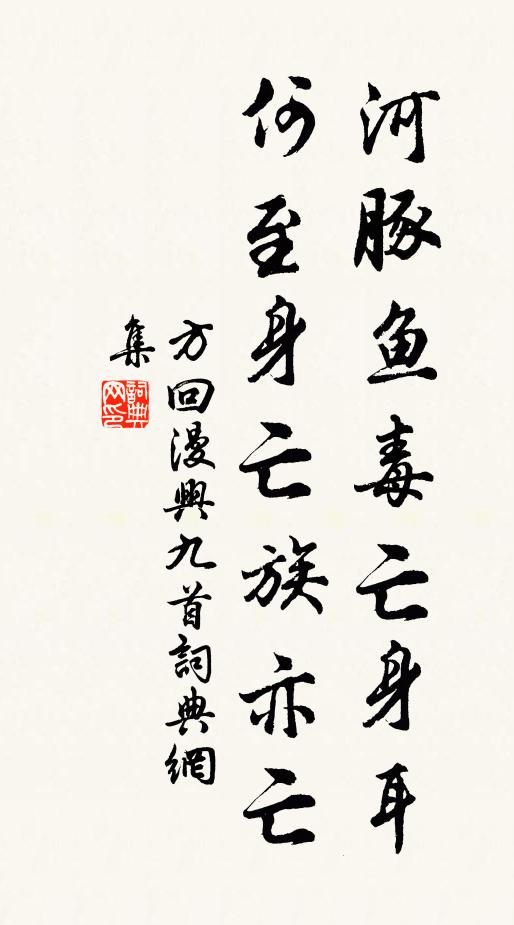 河豚鱼毒亡身耳
何至身亡族亦亡
方回漫興九首詞典網
集
詞典网印